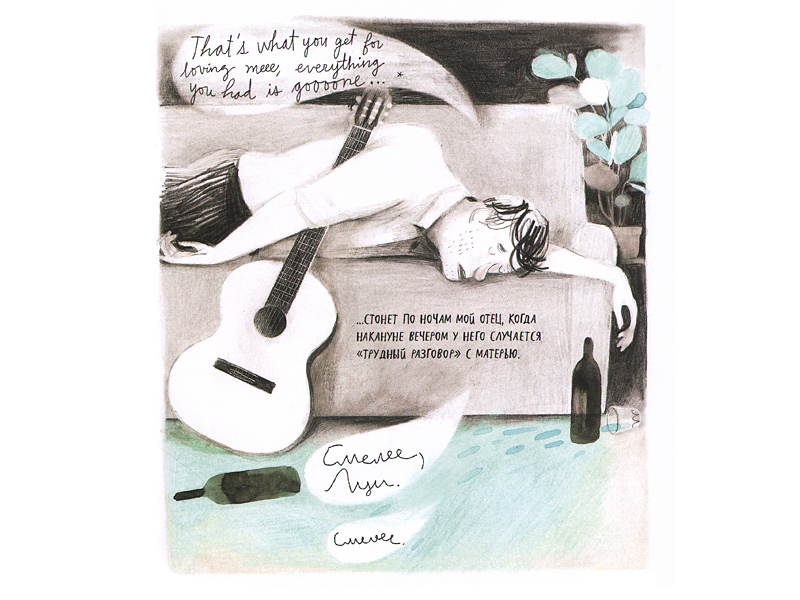 That's what you get for
loving meee, everything
you had is goooone... *
...СТОНЕТ ПО НОЧАМ МОЙ ОТЕЦ, КОГДА
НАКАНУНЕ ВЕЧЕРОМ У НЕГО СЛУЧАЕТСЯ
«ТРУДНЫЙ РАЗГОВОР» С МАТЕРЬЮ.
Смелее,
Луи.
Смелее.